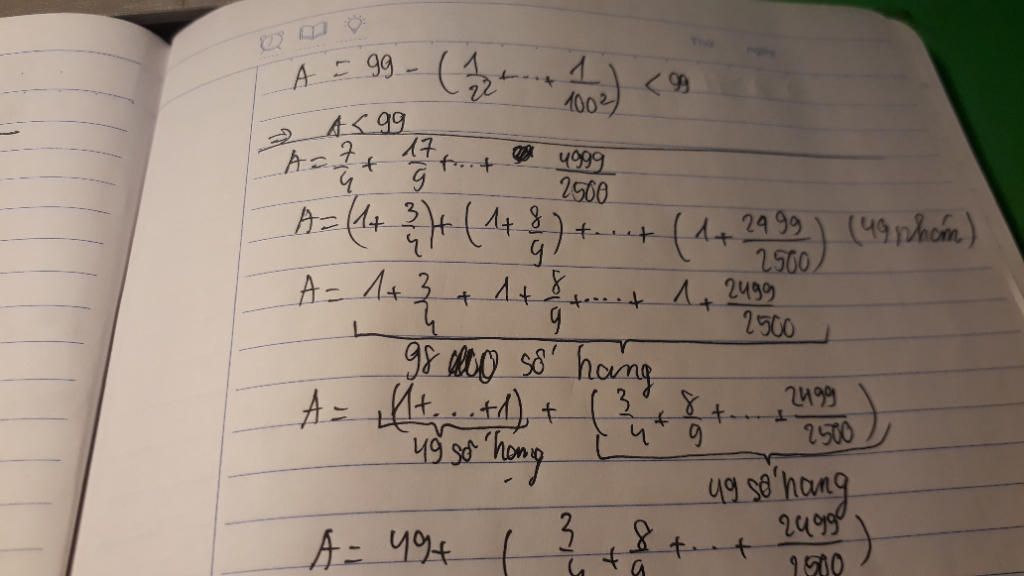 Thứ Ngày
A = 99 - (1/2² + ... + 1/100²) < 99
⇒ A < 99
A = 7/4 + 17/9 + ... + 4999/2500
A = (1 + 3/4) + (1 + 8/9) + .... + (1 + 2499/2500) (49 nhóm)
A = 1 + 3/4 + 1 + 8/9 + ..... + 1 + 2499/2500
98 số hang
A = (1 + ... + 1) + (3/4 + 8/9 + .... + 2499/2500)
49 số hang
49 số hang
A = 49 + (3/4 + 8/9 + ... + 2499/2500)